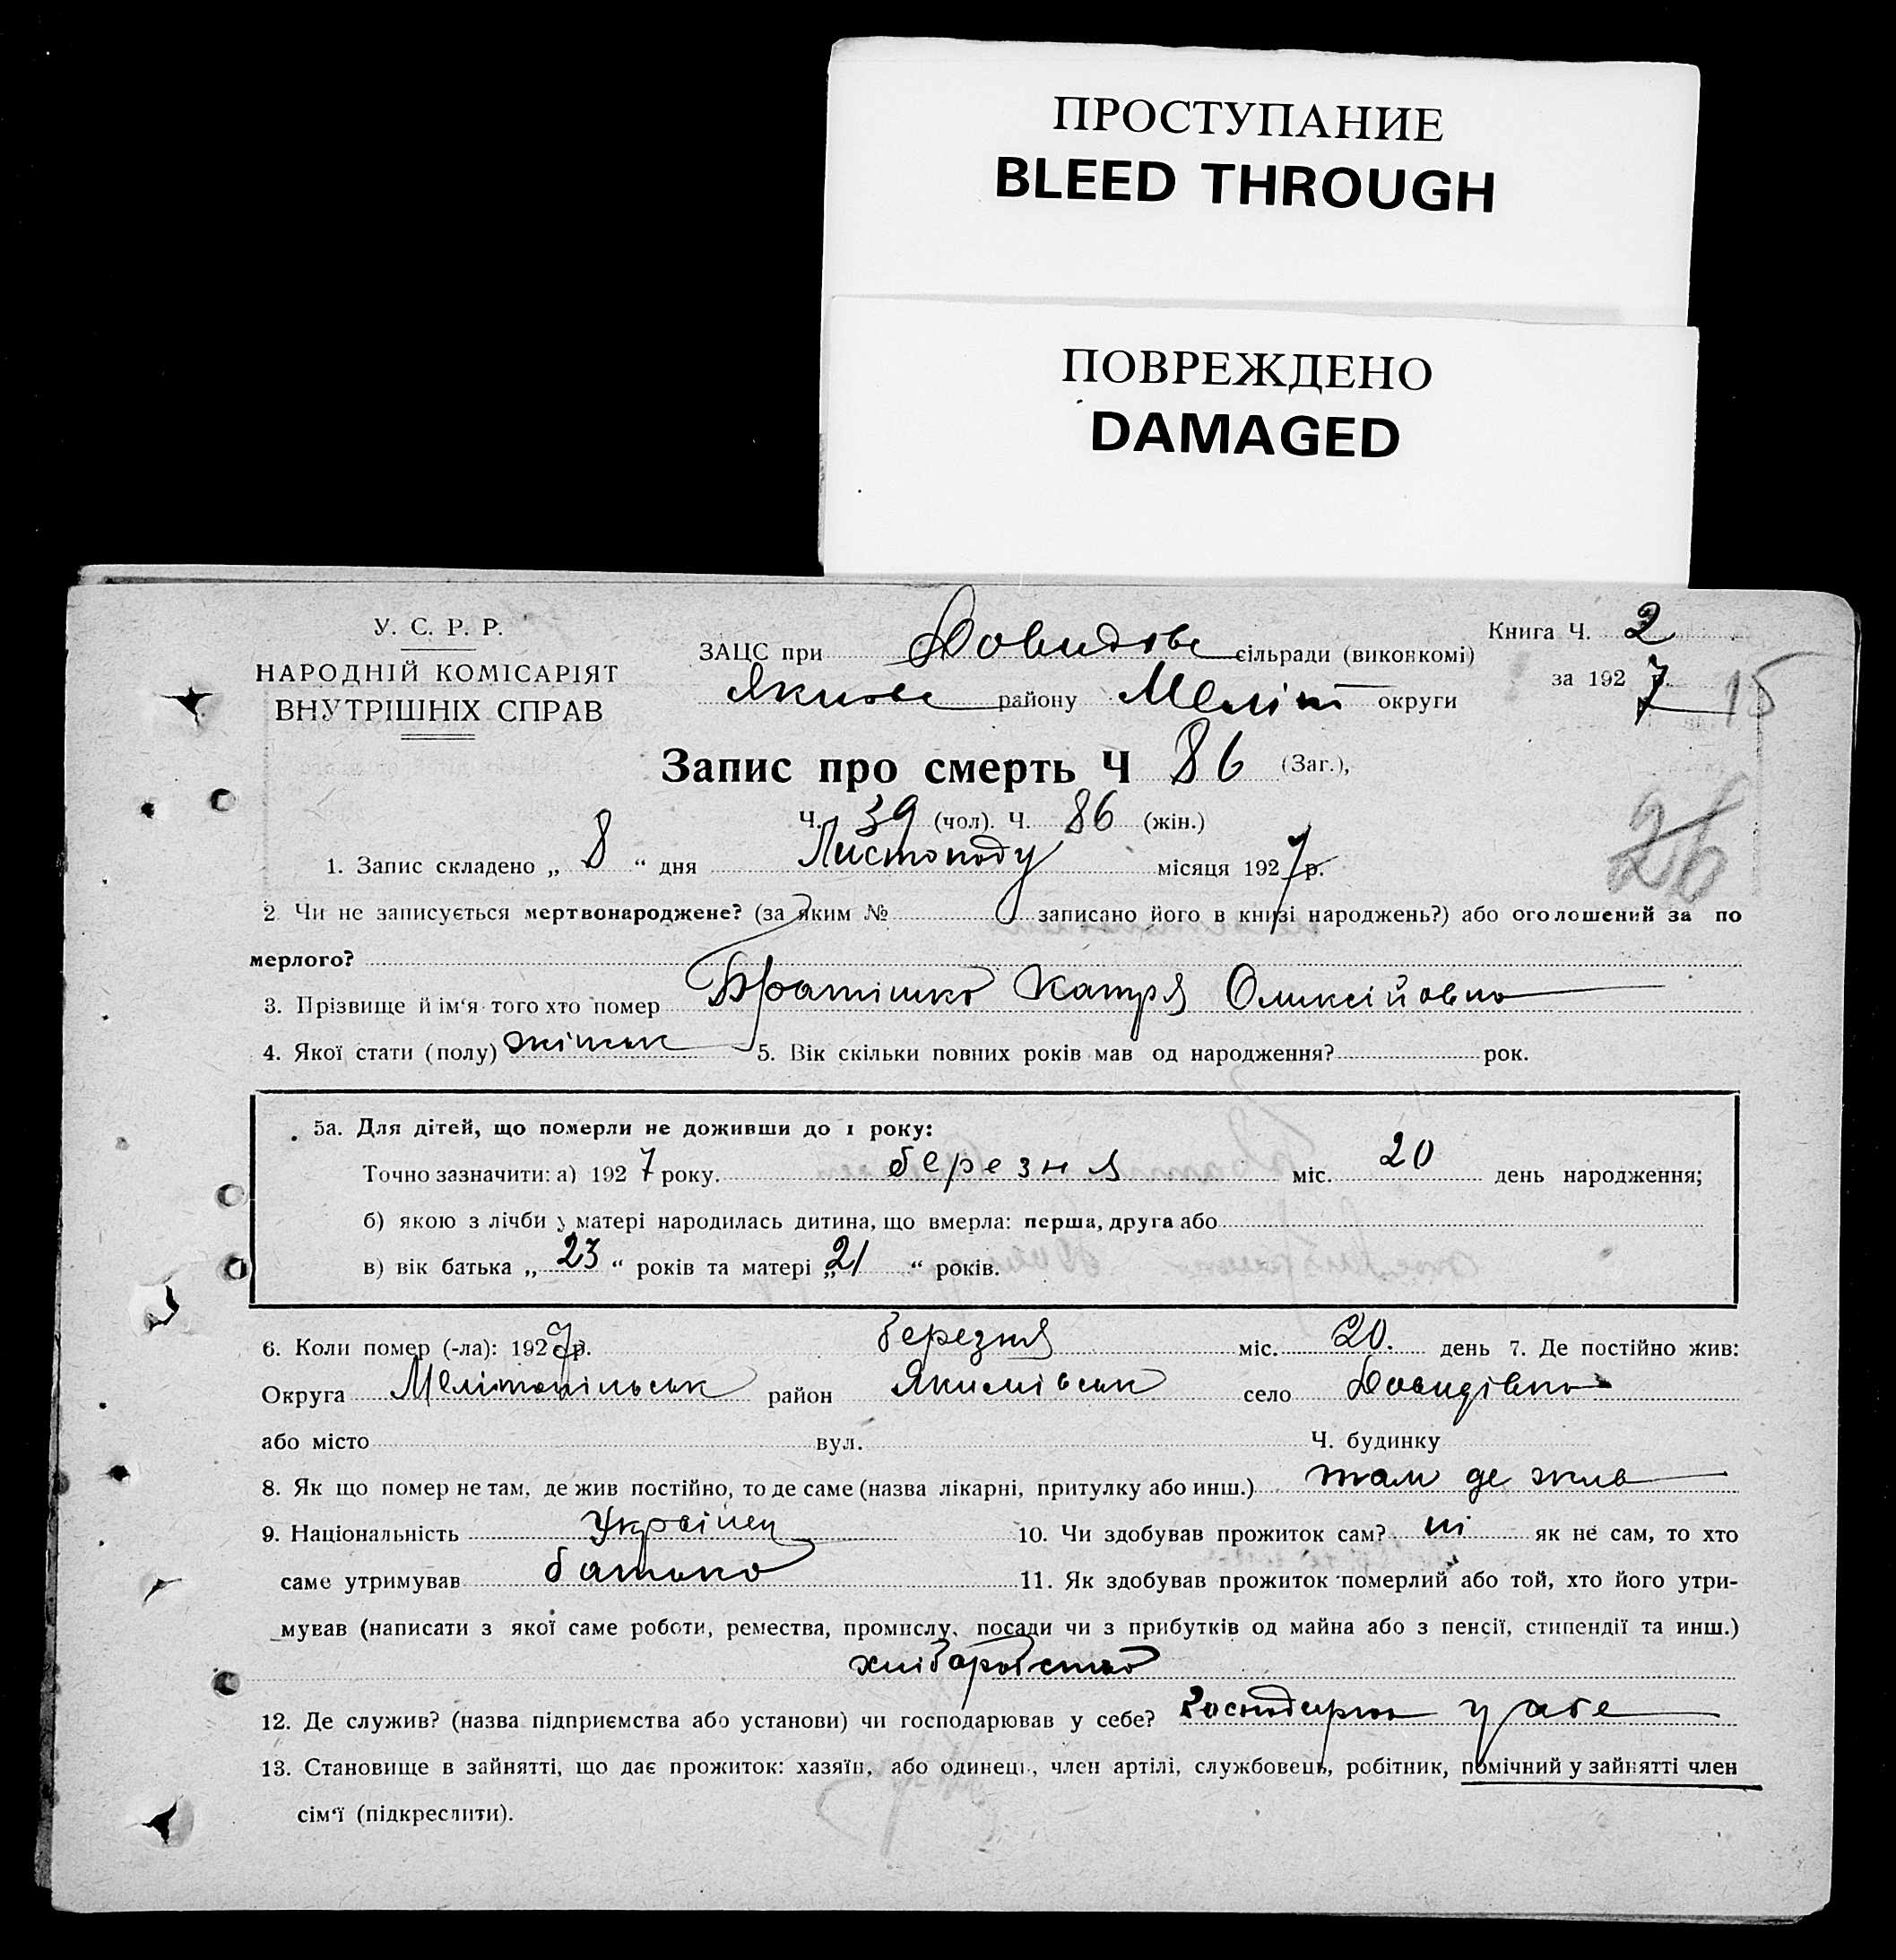 ПРОСТУПАНИЕ
BLEED THROUGH
ПОВРЕЖДЕНО
DAMAGED
У. С. Р. Р.
НАРОДНІЙ КОМІСАРІЯТ
ВНУТРІШНІХ СПРАВ
ЗАЦС при Довидове сільради (виконкомі)
Якимов району Меліт округи
Книга Ч. 2
за 1927 р.
15
Запис про смерть Ч 86 (Заг.),
Ч. 39 (чол). Ч. 86 (жін.)
26
1. Запис складено „ 8 “ дня Листопаду місяця 1927 р.
2 Чи не записується мертвонароджене? (за яким № записано його в книзі народжень?) або оголошений за по
мерлого?
3. Прізвище й ім'я того хто помер Братішко Катря Олексійовна
4. Якої стати (полу) жіноч 5. Вік скільки повних років мав од народження? рок.
5а. Для дітей, що померли не доживши до 1 року:
Точно зазначити: а) 1927 року. березня міс. 20 день народження;
б) якою з лічби у матері народилась дитина, що вмерла: перша, друга або
в) вік батька „ 23 “ років та матері „ 21 “ років.
6. Коли помер (-ла): 1927 р. березня міс. 20. день 7. Де постійно жив:
Округа Мелітопільськ район Якимівськ село Довидівка
або місто вул. Ч. будинку
8. Як що помер не там, де жив постійно, то де саме (назва лікарні, притулку або инш.) там де жив
9. Національність Українец 10. Чи здобував прожиток сам? ні як не сам, то хто
саме утримував батько 11. Як здобував прожиток померлий або той, хто його утри-
мував (написати з якої саме роботи, ремества, промислу, посади чи з прибутків од майна або з пенсії, стипендії та инш.)
хліборобство
12. Де служив? (назва підприємства або установи) чи господарював у себе? у себе
13. Становище в зайнятті, що дає прожиток: хазяїн, або одинець, член артілі, службовець, робітник, помічний у зайнятті член
сім'ї (підкреслити).